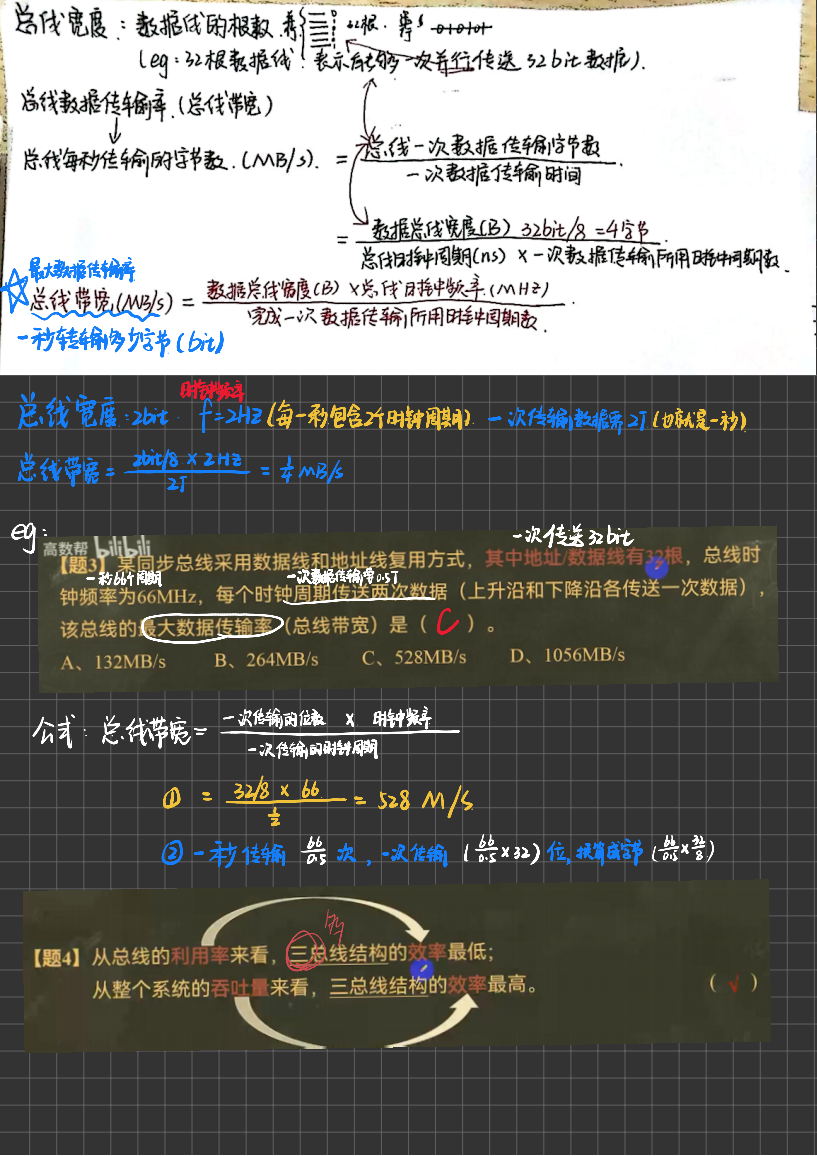 总线宽度：数据线的根数. 32根.
(eg：32根数据线：表示能够一次并行传送32bit数据).
总线数据传输率.(总线带宽)
总线每秒传输的字节数.(MB/s). = 总线一次数据传输字节数 / 一次数据传输时间.
= 数据总线宽度(B) 32bit/8 = 4字节 / 总线时钟周期(ns) × 一次数据传输所用时钟周期数.
最大数据传输率
总线带宽(MB/s) = 数据总线宽度(B) × 总线时钟频率.(MHZ) / 完成一次数据传输所用时钟周期数.
一秒传输多少字节(bit)
时钟频率
总线宽度：2bit f=2HZ (每一秒包含2个时钟周期). 一次传输数据需2T (也就是一秒)
总线带宽 = 2bit/8 × 2HZ / 2T = 1/4 MB/s
eg：
高数帮 bilibili
一次传送32bit
【题3】某同步总线采用数据线和地址线复用方式，其中地址/数据线有32根，总线时
一秒66个周期 一次数据传输需0.5T
钟频率为66MHz，每个时钟周期传送两次数据（上升沿和下降沿各传送一次数据），
该总线的最大数据传输率（总线带宽）是（ C ）。
A、132MB/s B、264MB/s C、528MB/s D、1056MB/s
公式：总线带宽 = 一次传输的位数 × 时钟频率 / 一次传输的时钟周期
① = 32/8 × 66 / 1/2 = 528 M/s
② 一秒传输 66/0.5 次，一次传输 (66/0.5×32) 位, 换算成字节 (66/0.5×32/8)
【题4】从总线的利用率来看，三总线结构的效率最低；
从整个系统的吞吐量来看，三总线结构的效率最高。 （ √ ）